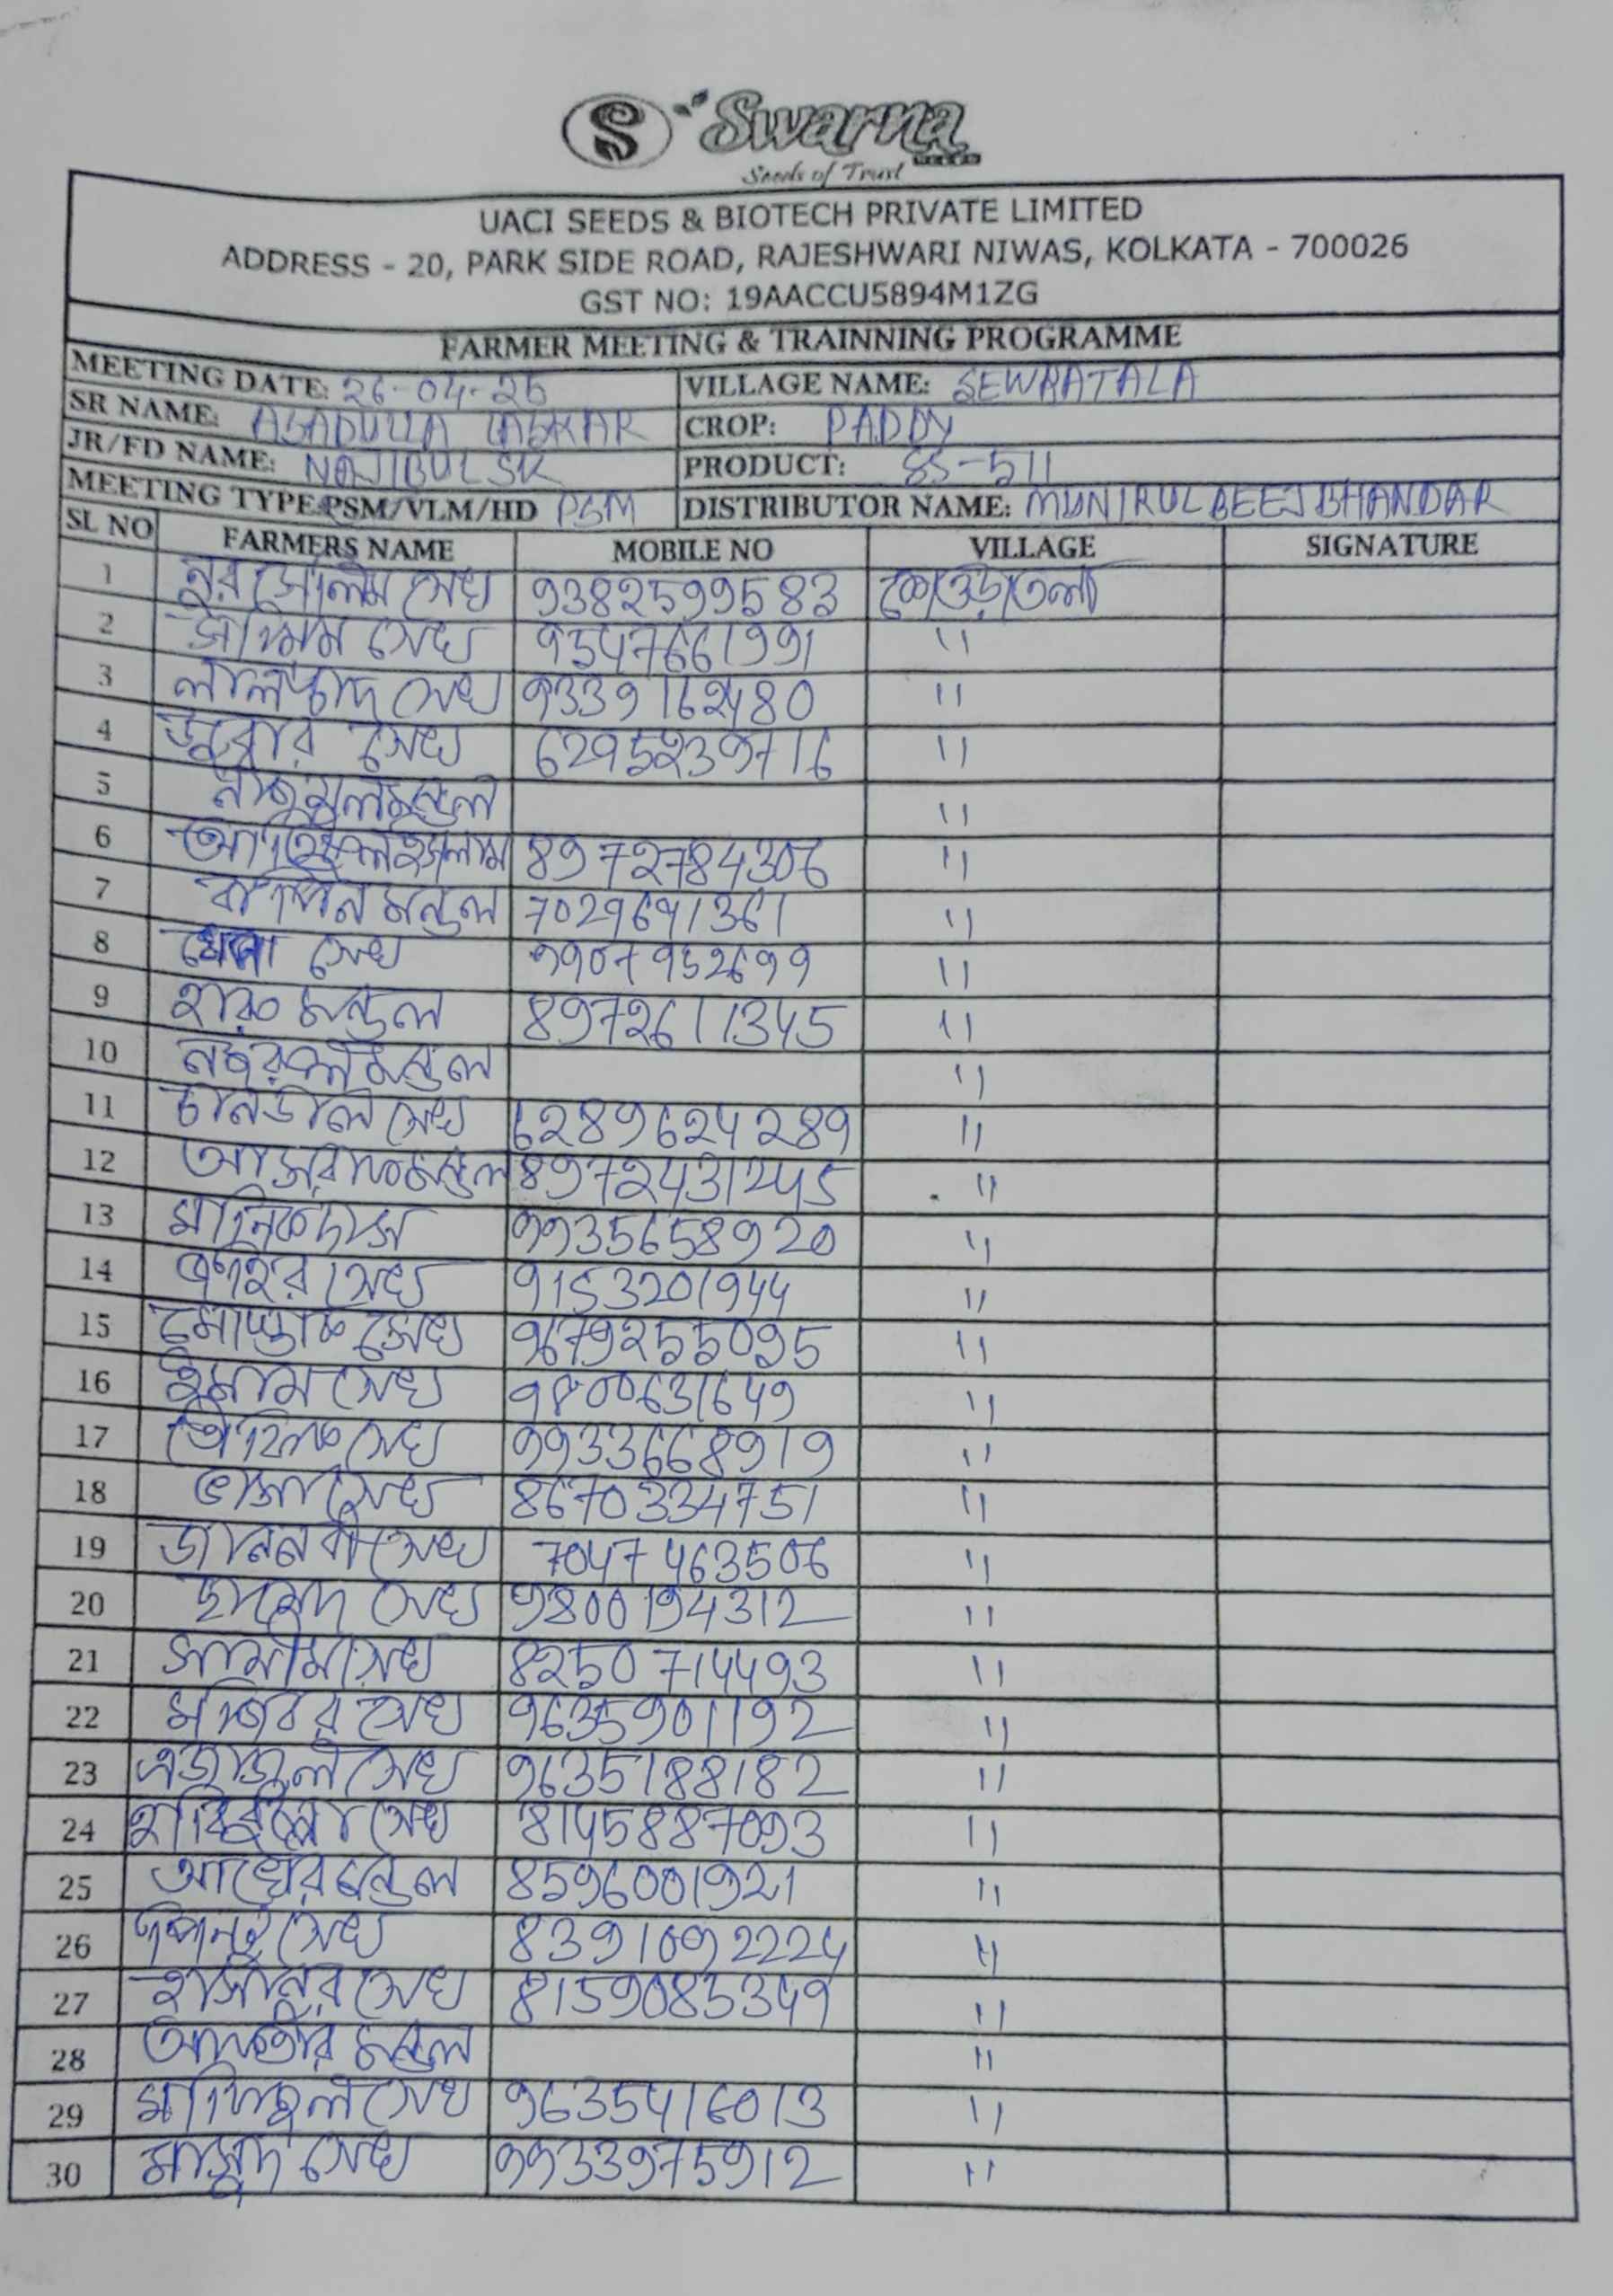 S Swarna
Seeds of Trust
UACI SEEDS & BIOTECH PRIVATE LIMITED
ADDRESS - 20, PARK SIDE ROAD, RAJESHWARI NIWAS, KOLKATA - 700026
GST NO: 19AACCU5894M1ZG
FARMER MEETING & TRAINNING PROGRAMME
MEETING DATE: 26-04-25 VILLAGE NAME: SEWRATALA
SR NAME: ASADULLA LASKAR CROP: PADDY
JR/FD NAME: NAJIBUL SK PRODUCT: SS-511
MEETING TYPE:PSM/VLM/HD PSM DISTRIBUTOR NAME: MUNIRUL BEEJ BHANDAR
SL NO FARMERS NAME MOBILE NO VILLAGE SIGNATURE
1 নুর সেলিম সেখ 9382599583
2 সেখ 9547661991 "
3 লালচাঁদ সেখ 9339162480 "
4 জুব্বার সেখ 6295239716 "
5 মন্ডল "
6 ইসলাম 8972784306 "
7 মন্ডল 7029691361 "
8 সেখ 9907952699 "
9 হারু মন্ডল 8972611345 "
10 নজরুল মন্ডল "
11 সেখ 6289624289 "
12 মন্ডল 8972431245 "
13 মানিক দাস 9935658920 "
14 সেখ 9153201944 "
15 মোস্তাক সেখ 9679255095 "
16 ইমাম সেখ 9800631649 "
17 সেখ 9933668919 "
18 সেখ 8670334751 "
19 সেখ 7047463506 "
20 সেখ 9800194312 "
21 সামীম সেখ 8250714493 "
22 মজিবর সেখ 9635901192 "
23 সেখ 9635188182 "
24 সেখ 8145887093 "
25 মন্ডল 8596001921 "
26 সেখ 8391092224 "
27 হাসানুর সেখ 8159085349 "
28 মন্ডল "
29 সেখ 9635416013 "
30 মাসুদ সেখ 9933975912 "